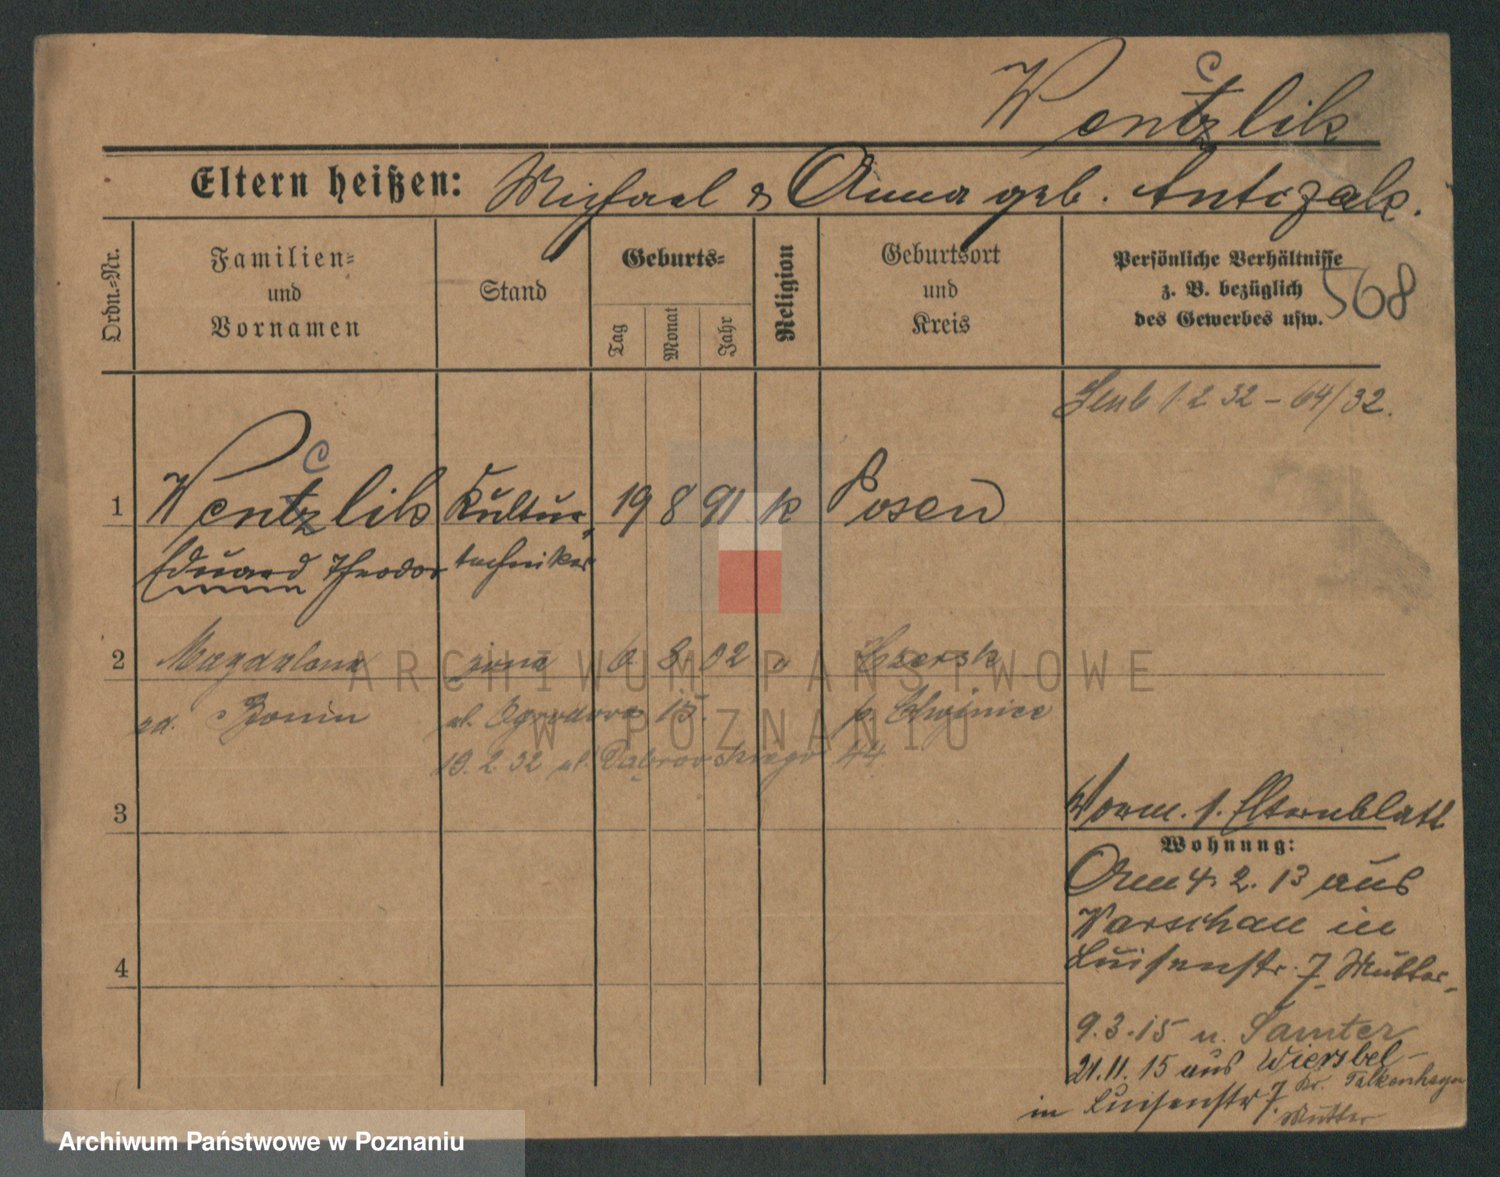 Wentzlik
c
Eltern heißen: Michael & Anna geb. Antczak.
Ordn.-Nr.
Familien- und Vornamen
Stand
Geburts-
Tag
Monat
Jahr
Religion
Geburtsort und Kreis
Persönliche Verhältnisse z. B. bezüglich des Gewerbes usw.
568
1.2.32 - 64/32.
c
1 Wentzlik Kultur- 19 8 91 k Posen
Eduard Theodor techniker
2 Magdalena żona 6 8 02 " Czersk
zd. Bonin ul. Ogrodowa 15. p. Chojnice
19.2.32 ul. Dąbrowskiego 44
3
Vorm. s. Elternblatt
Wohnung:
Am 4.2.13 aus
Warschau in
Luisenstr. 7 Mutter,
4
9.3.15 n. Samter
21.11.15 aus Wiersbel-
Kr. Falkenhagen
in Luisenstr 7.
Mutter
ARCHIWUM PAŃSTWOWE
W POZNANIU
Archiwum Państwowe w Poznaniu